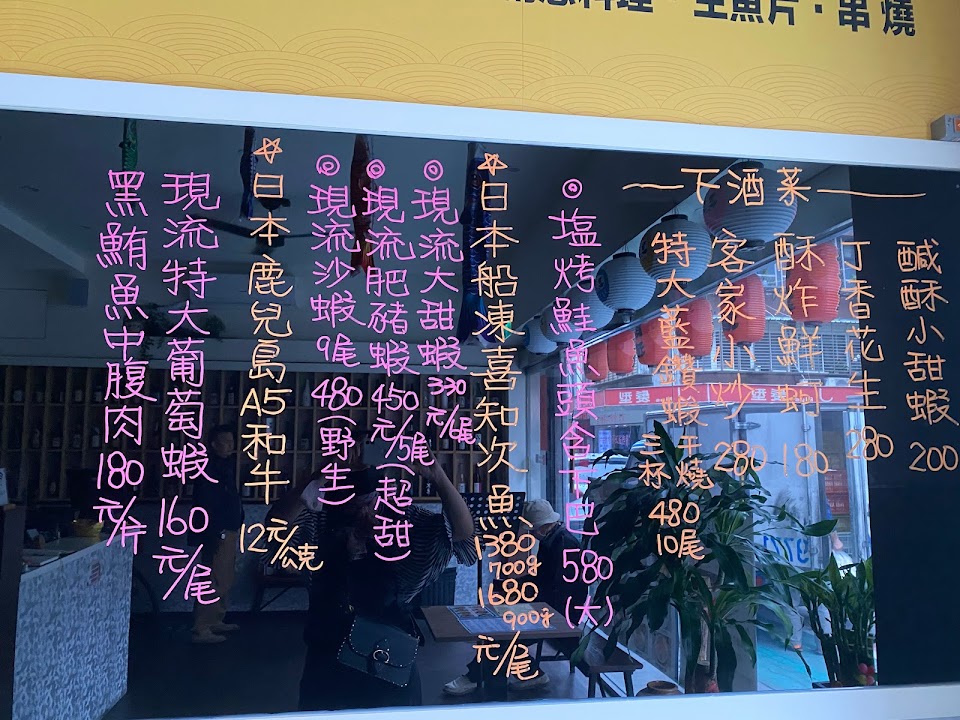 生魚片·串燒
下酒菜
鹹酥小甜蝦 200
丁香花生 280
酥炸鮮蚵 180
客家小炒 280
特大藍鑽蝦 三杯 干燒 480 10尾
◎塩烤鮭魚頭含下巴 580 (大)
☆日本船凍喜知次魚 1380 700g 1680 900g 元/尾
◎現流大甜蝦 330元/6尾
◎現流肥豬蝦 450元/5尾(超甜)
◎現流沙蝦 9尾 480(野生)
☆日本鹿兒島A5和牛 12元/公克
現流特大葡萄蝦 160元/尾
黑鮪魚中腹肉 180元/片